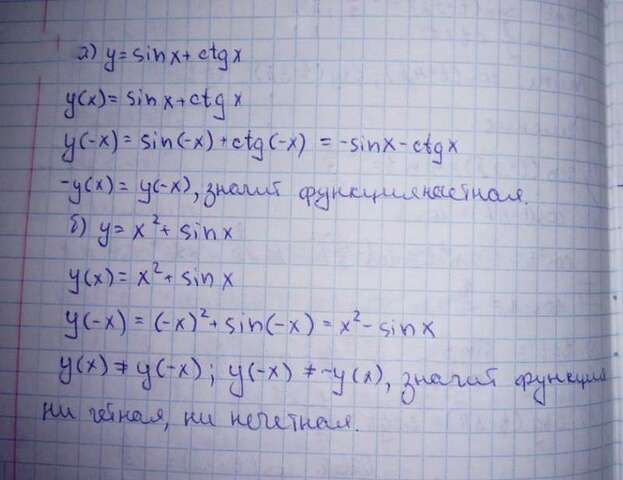 а) y = sin x + ctg x
y(x) = sin x + ctg x
y(-x) = sin(-x) + ctg(-x) = -sin x - ctg x
-y(x) = y(-x), значит функция
б) y = x² + sin x
y(x) = x² + sin x
y(-x) = (-x)² + sin(-x) = x² - sin x
y(x) ≠ y(-x); y(-x) ≠ -y(x), значит функция
ни чётная, ни нечетная.